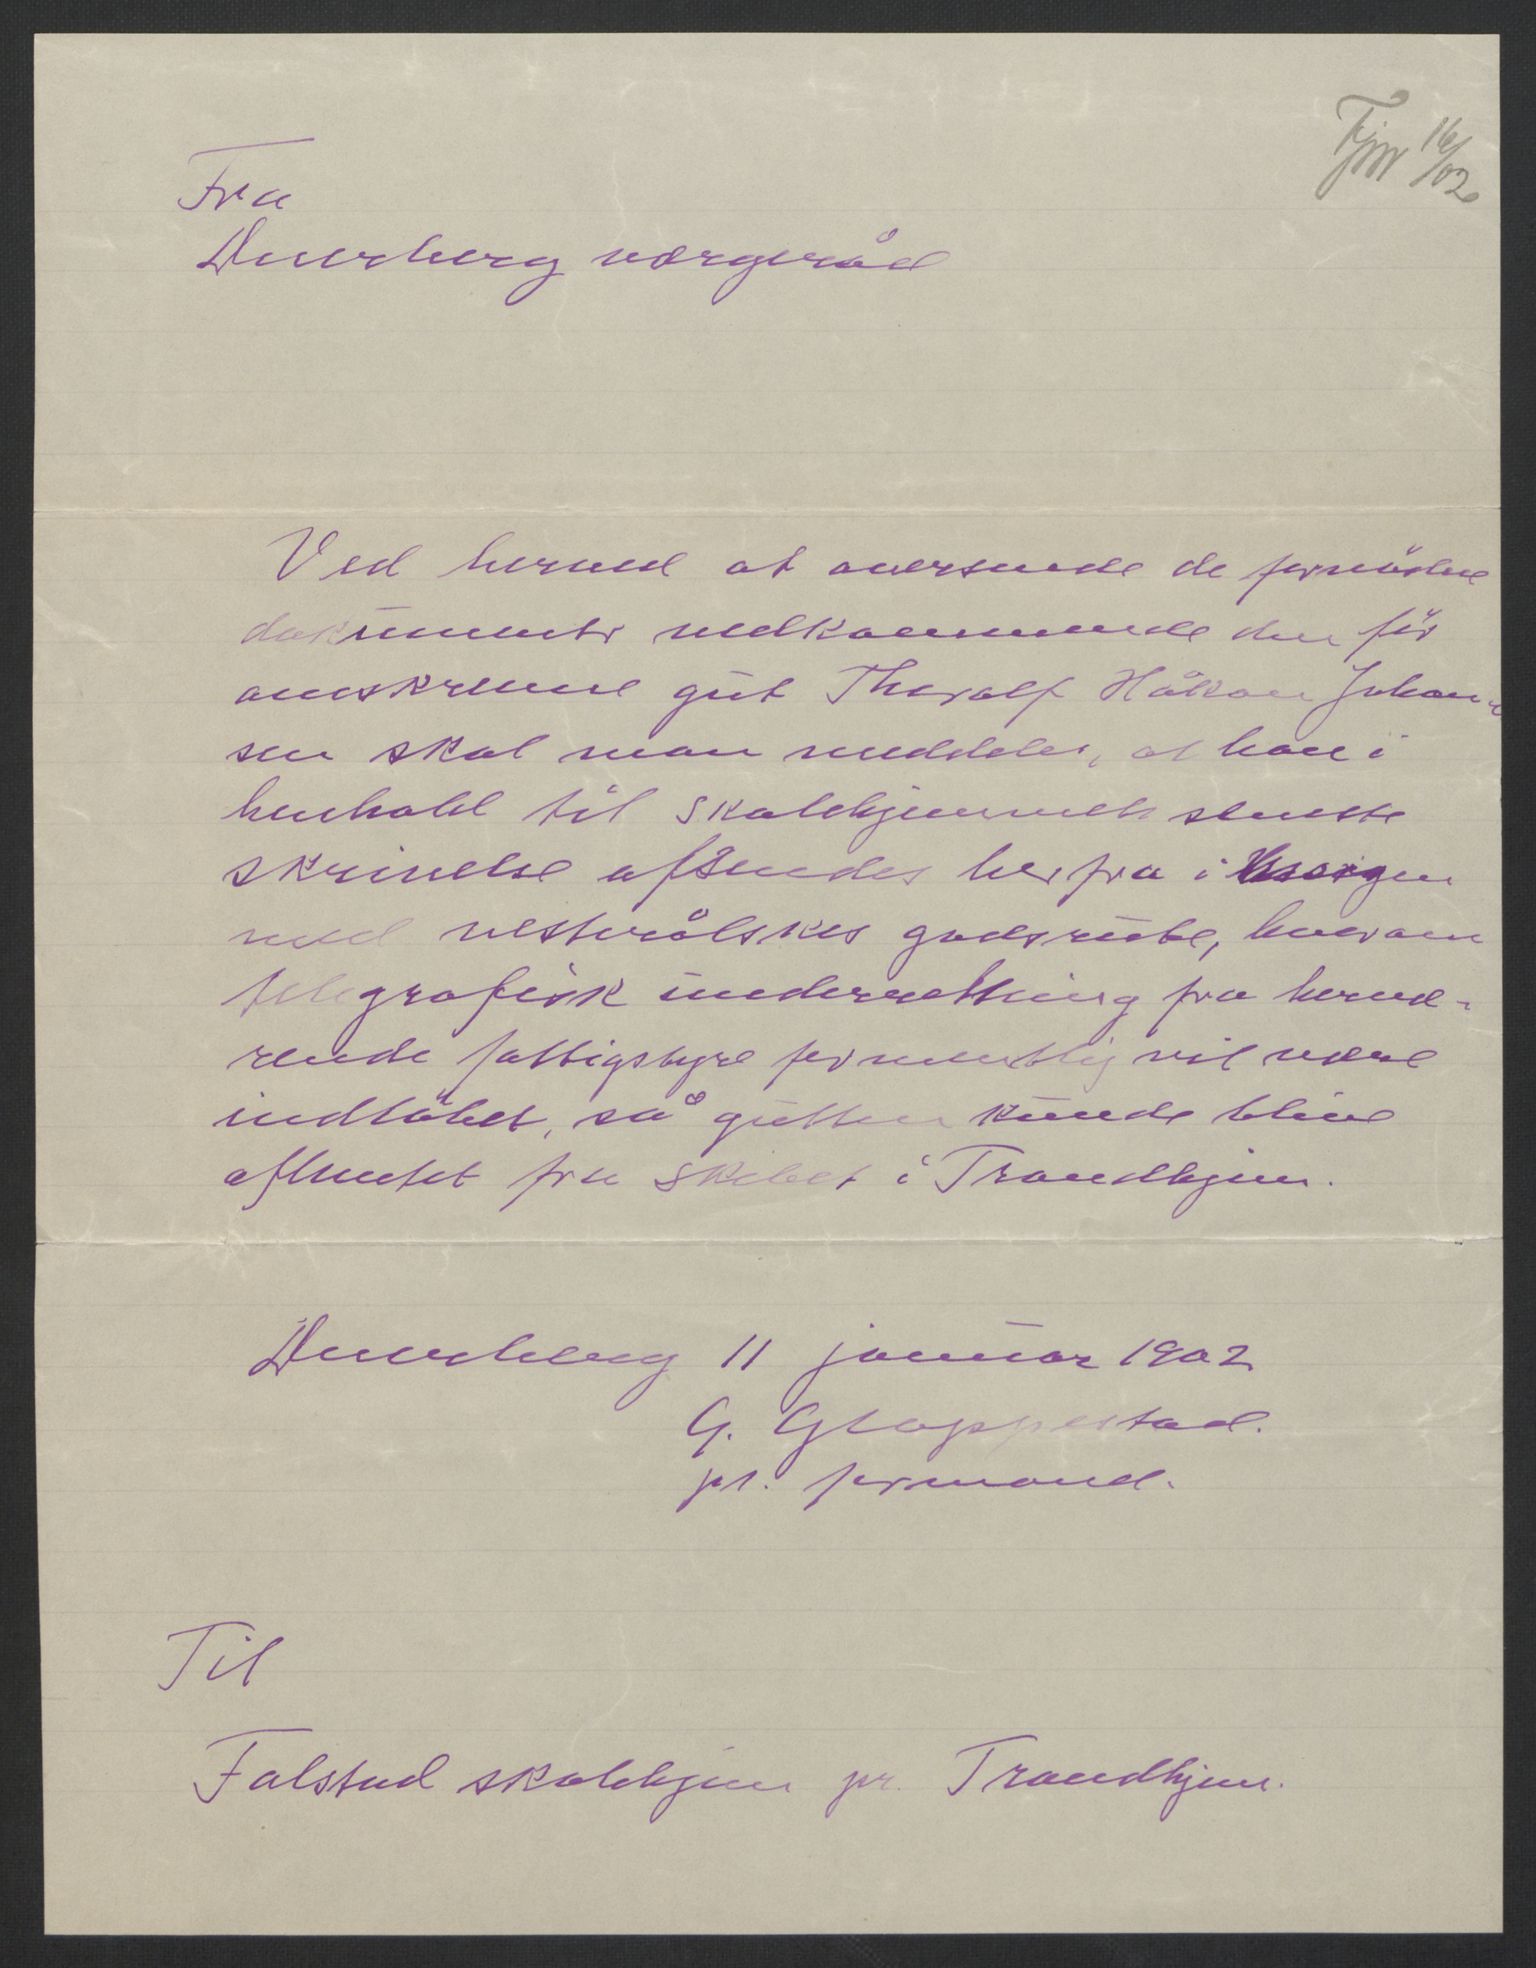 Fjnr 16/02
Fra
Duerberg værgeråd
Ved herved at oversende de fornødne
dokumenter vedkommende den før
omskrevne gut Thoralf Håkon Johan-
sen skal man meddele, at han i
henhold til skolehjemmets seneste
skrivelse afsendes herfra i morgen
med vesterålskes godsrute, hvorom
telegrafisk underretning fra hervæ-
rende fattigstyre formentlig vil være
indløbet, så gutten kunde blive
afhentet fra skibet i Trondhjem.
Duerberg 11 januar 1902
G. Gloppestad.
pt. formand.
Til
Falstad skolehjem pr. Trondhjem.